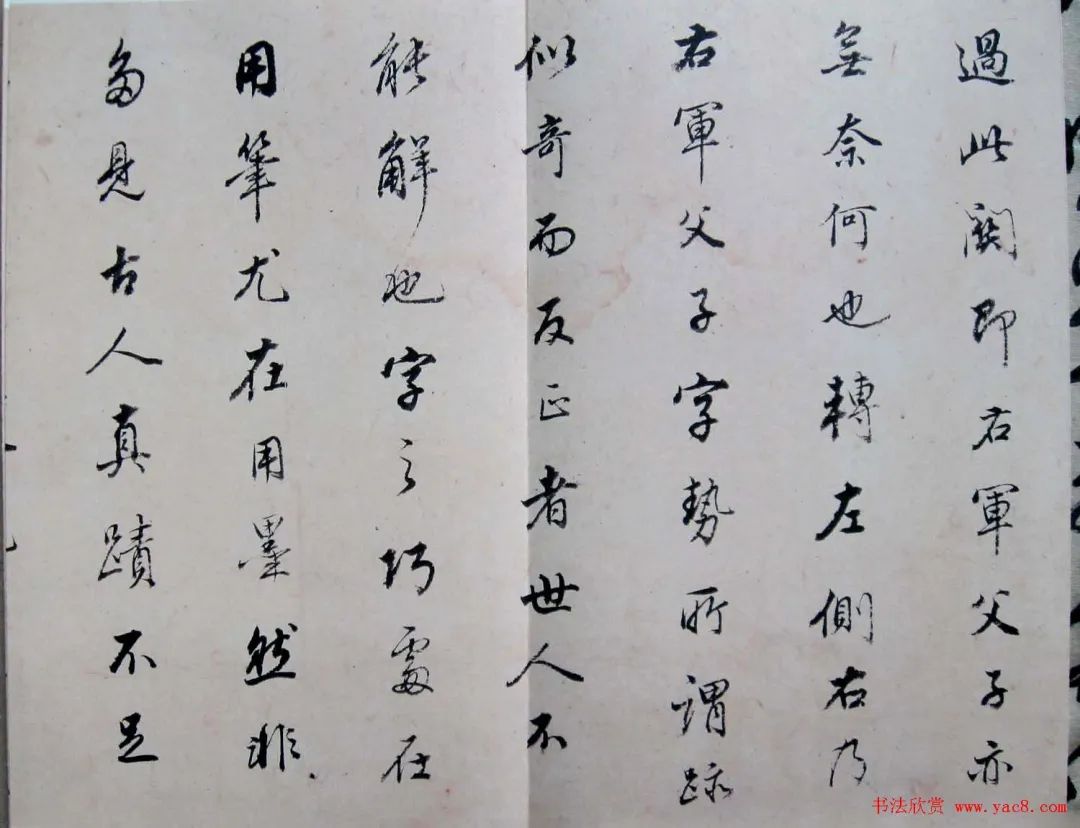 過此關即右軍父子亦
無奈何也轉左側右乃
右軍父子字勢所謂跡
似奇而反正者世人不
能解也字之巧處在
用筆尤在用墨然非
多見古人真蹟不足
书法欣赏 www.yac8.com